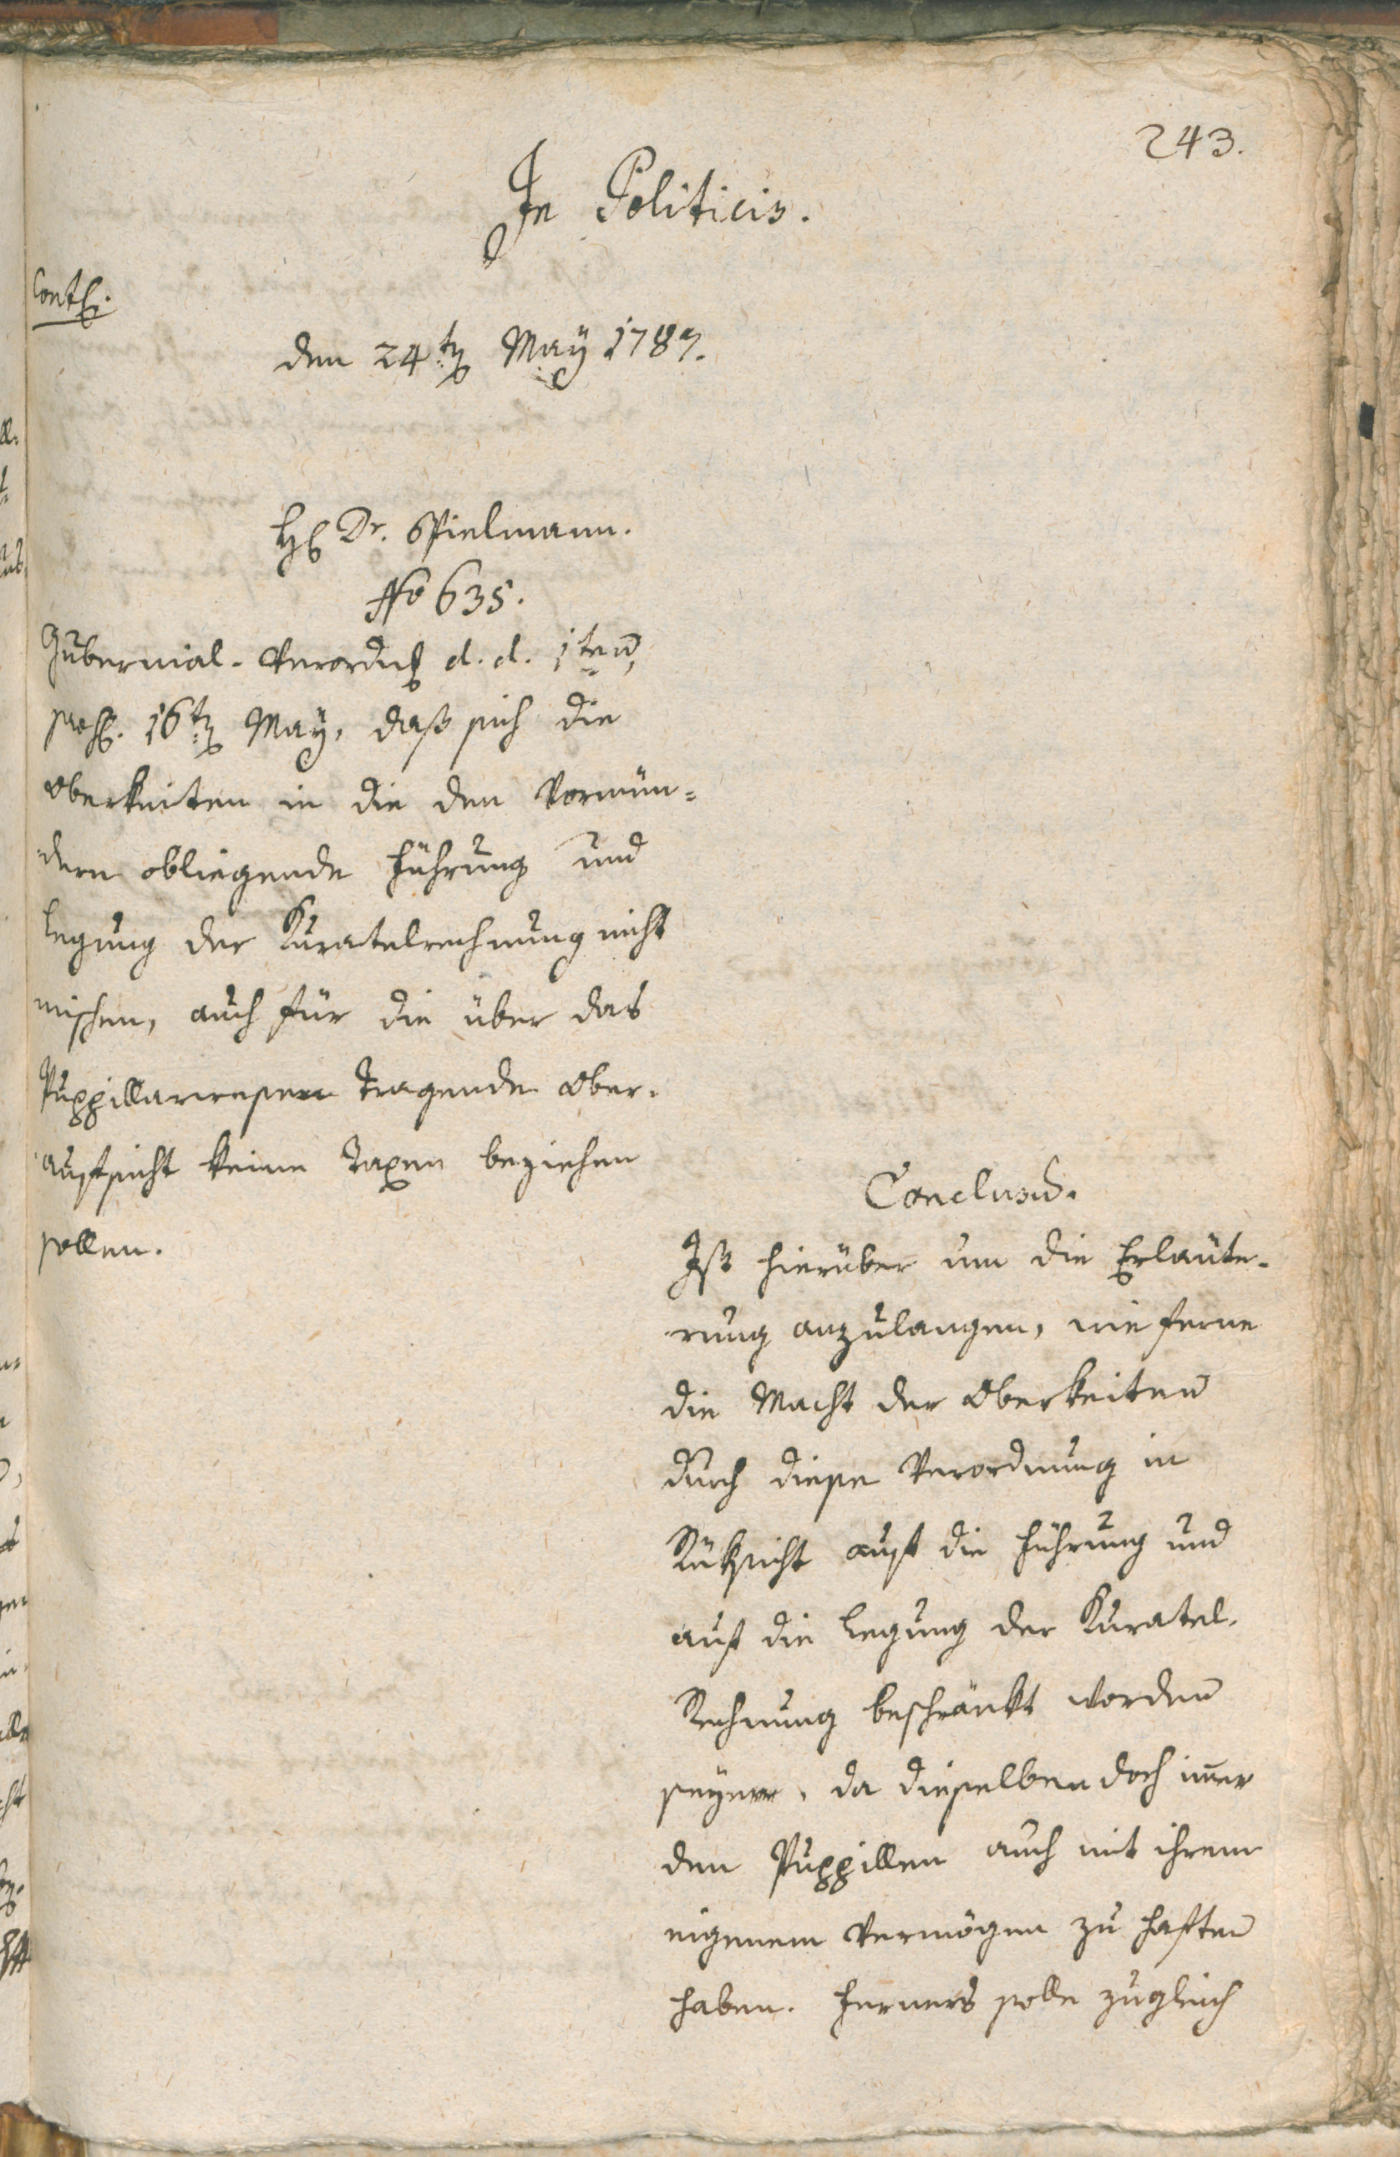 243.
In Politicis.
den 24t May 1787.
H Dr. Spielmann.
No 635.
Gubernial-Verordng d. d. 1ten,
praes. 16t May, daß sich die
Oberkeiten in die den Vormün=
dern obliegende Führung und
Legung der Kuratelrechnung nicht
mischen, auch für die über das
Puppillarwesen tragende Ober-
aufsicht keine Taxen beziehen
sollen.
Conclusũ.
Ist hierüber um die Erläute-
rung anzulangen, wie ferne
die Macht der Oberkeiten
durch diese Verordnung in
Rüksicht auf die Führung und
auf die Legung der Kuratel-
Rechnung beschränkt worden
seyen, da dieselben doch im̃er
den Puppillen auch mit ihrem
eigenem Vermögen zu haften
haben. Ferners solle zugleich